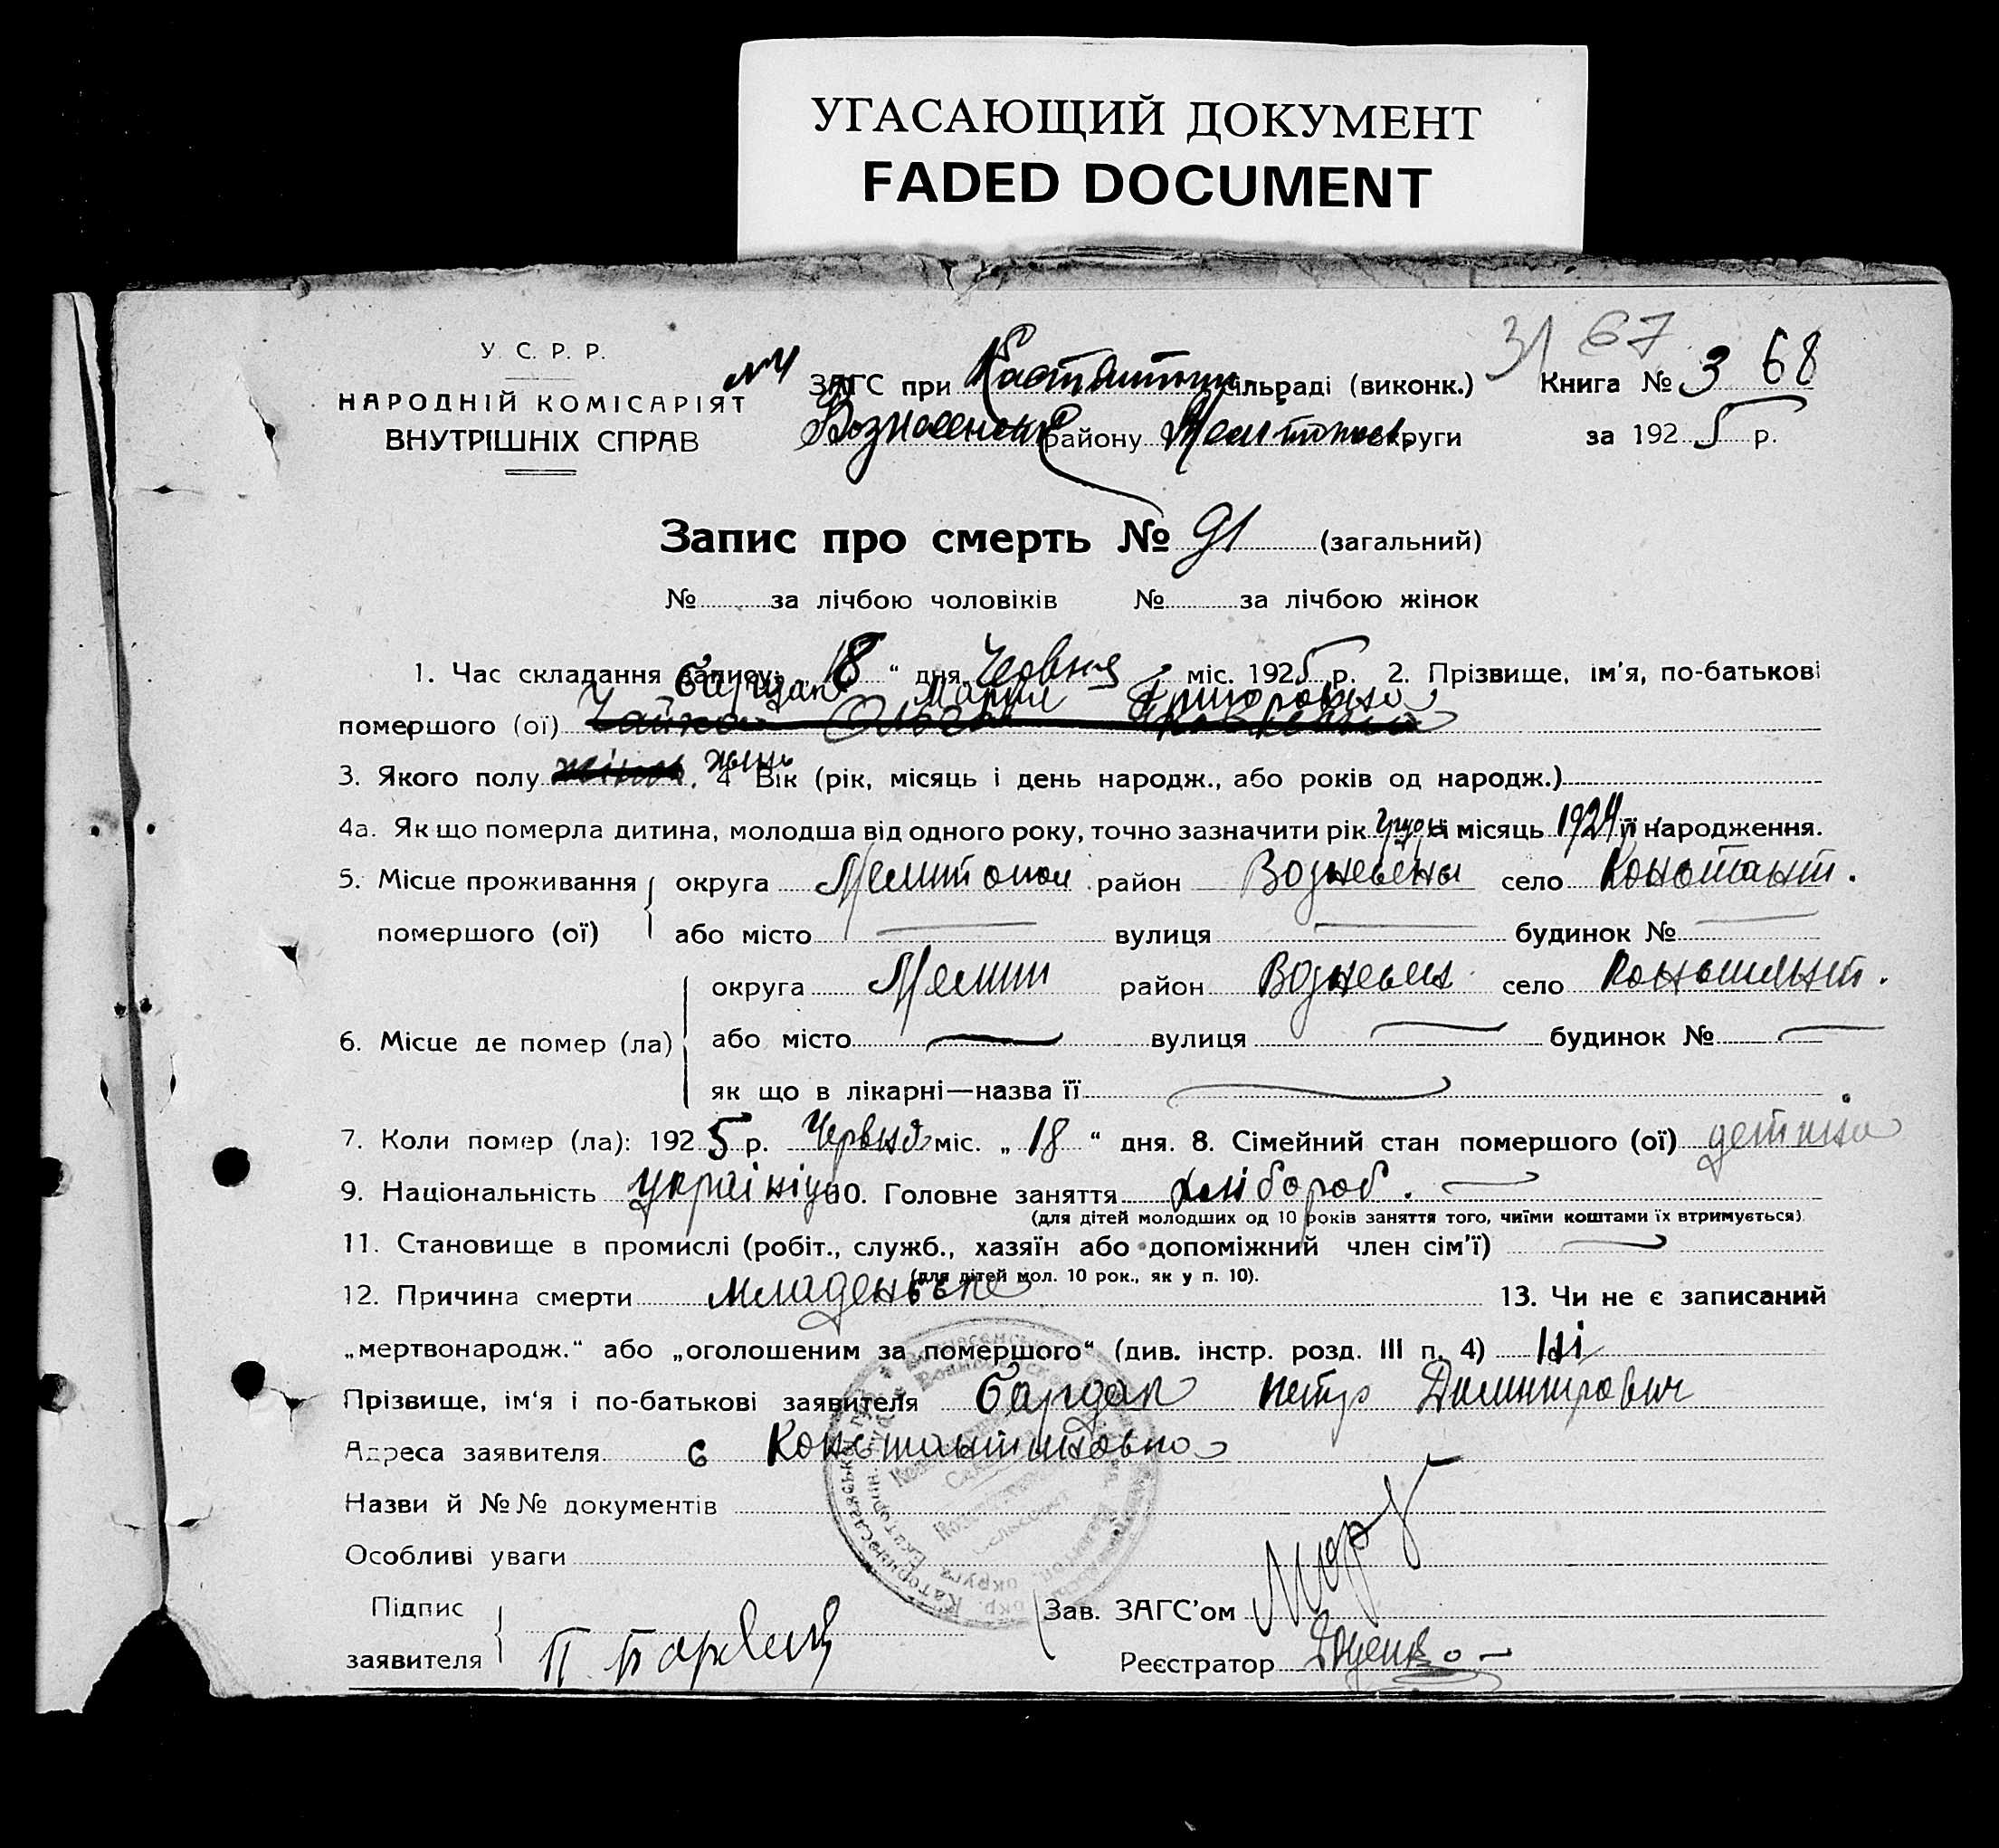 УГАСАЮЩИЙ ДОКУМЕНТ
FADED DOCUMENT
31 67
У. С. Р. Р.
НАРОДНІЙ КОМІСАРІЯТ
ВНУТРІШНІХ СПРАВ
ЗАГС при сільраді (виконк.) Книга № 3 68
Вознесенськ району Мелітопол округи за 1925 р.
Запис про смерть № 91 (загальний)
№ за лічбою чоловіків № за лічбою жінок
1. Час складання запису: „18“ дня Червня міс. 1925 р. 2. Прізвище, ім'я, по-батькові
Бардак Мария Григоровна
помершого (ої) Чайка Ольга
3. Якого полу жінок. жінь 4 Вік (рік, місяць і день народж., або років од народж.)
4а. Як що померла дитина, молодша від одного року, точно зазначити рік і місяць 1924 її народження.
5. Місце проживання округа Мелитопол район Вознесены село Констант.
помершого (ої) або місто — вулиця — будинок № —
округа Мелит район Вознесен село Констант.
6. Місце де помер (ла) або місто — вулиця — будинок № —
як що в лікарні—назва її —
7. Коли помер (ла): 1925 р. Червня міс. „18“ дня. 8. Сімейний стан помершого (ої) детина
9. Національність україніц 10. Головне заняття хлібороб. —
(для дітей молодших од 10 років заняття того, чиїми коштами їх втримується).
11. Становище в промислі (робіт., служб., хазяїн або допоміжний член сім'ї) —
(для дітей мол. 10 рок., як у п. 10).
12. Причина смерти младеньске 13. Чи не є записаний
„мертвонародж.“ або „оголошеним за помершого“ (див. інстр. розд. III п. 4) ні
Прізвище, ім'я і по-батькові заявителя Бардак Петро Димитрович
Адреса заявителя с Константиновка
Назви й №№ документів
Особливі уваги
Підпис
заявителя
Зав. ЗАГС'ом
Реєстратор Доценко